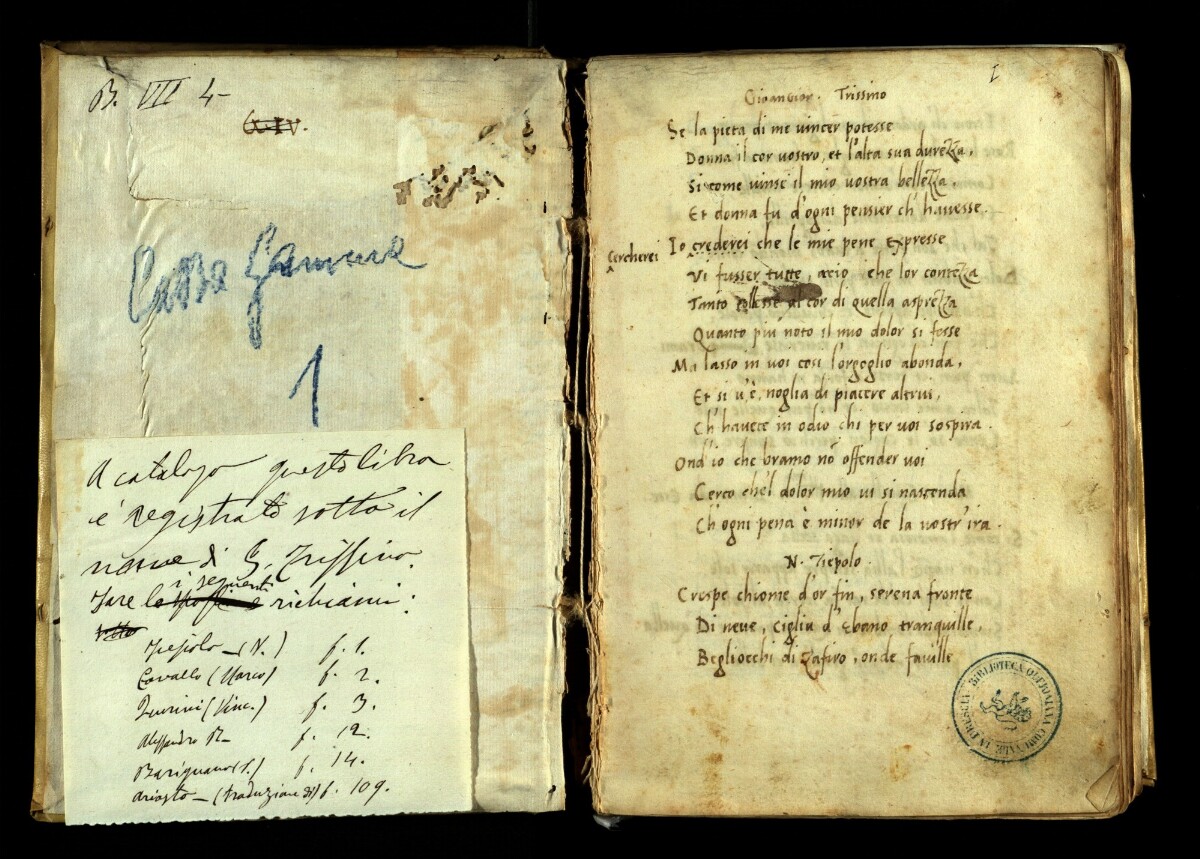 B. VII 4-
XIV.
Cassa ferrea
1
A catalogo questo libro
è registrato sotto il
nome di G. Trissino.
Fare i seguenti richiami:
Tiepolo - (N.) f. 1.
Cavallo (Marco) f. 2.
Quirini (Vinc.) f. 3.
Alessandro R- f. 12.
Barignano (P.) f. 14.
Ariosto - (traduzione di) f. 109.
I
Gioangior. Trissino
Se la pieta di me vincer potesse
Donna il cor vostro, et l'alta sua durezza,
Si come vinse il mio vostra bellezza,
Et donna fu d'ogni pensier ch'havesse.
Cercherei Io crederei che le mie pene expresse
Vi fusser tutte, accio che lor contezza
Tanto al cor di quella asprezza
Quanto piu noto il mio dolor si fesse
Ma lasso in voi cosi l'orgoglio abonda,
Et si v'è noglia di piacere altrui,
Ch'havete in odio chi per voi sospira.
Ond'io che bramo nō offender voi
Cerco che'l dolor mio vi si nasconda
Ch'ogni pena è minor de la vostr'ira.
N. Tiepolo
Crespe chiome d'or fin, serena fronte
Di neve, ciglia d'Ebano tranquille,
Begliocchi di Zafiro, onde faville
BIBLIOTECA QUERINIANA COMUNALE IN BRESCIA